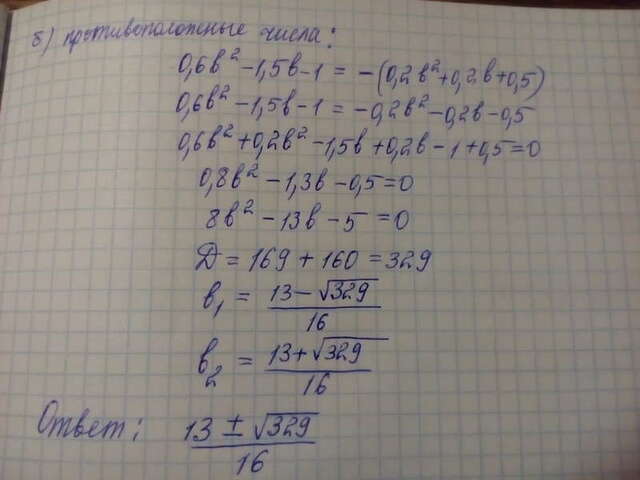 б) противоположные числа:
0,6b² - 1,5b - 1 = -(0,2b² + 0,2b + 0,5)
0,6b² - 1,5b - 1 = -0,2b² - 0,2b - 0,5
0,6b² + 0,2b² - 1,5b + 0,2b - 1 + 0,5 = 0
0,8b² - 1,3b - 0,5 = 0
8b² - 13b - 5 = 0
Д = 169 + 160 = 329
b₁ = (13 - √329)/16
b₂ = (13 + √329)/16
Ответ: (13 ± √329)/16